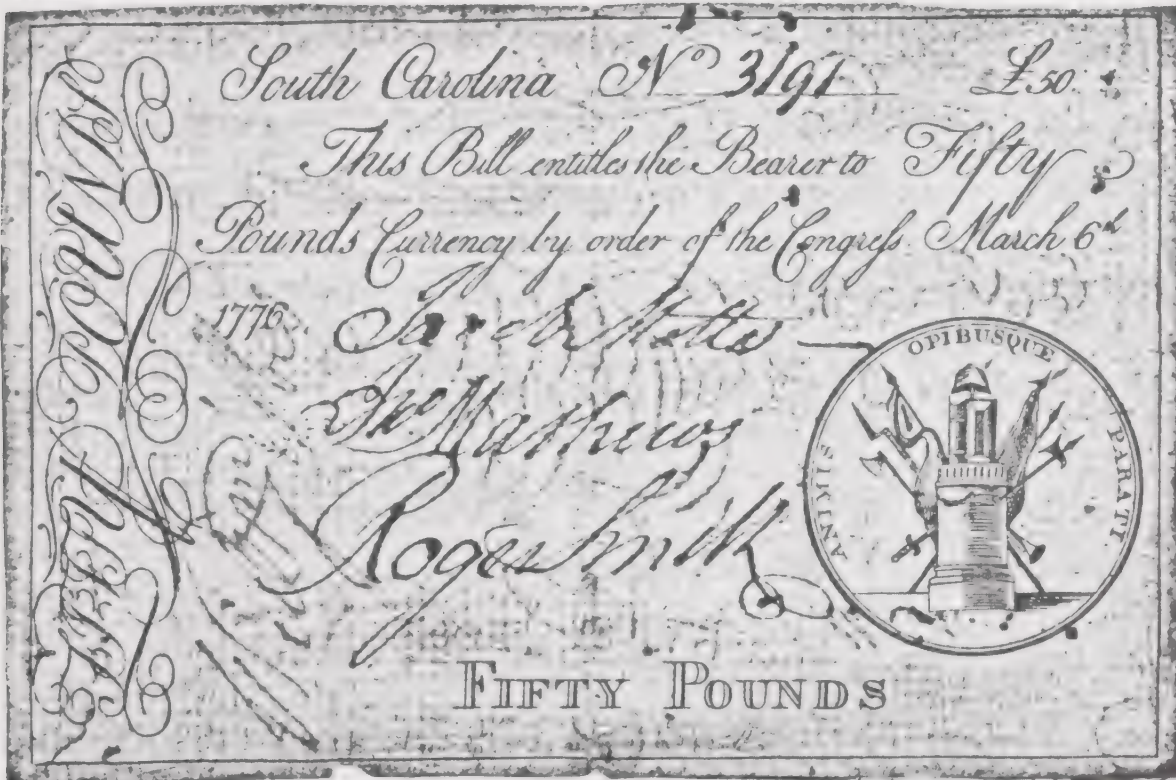 South Carolina Nº 3191 £50.
This Bill entitles the Bearer to Fifty
Pounds Currency by order of the Congress March 6th
1776
Jacob Motte
Jno Mathews
Roger Smith
ANIMIS OPIBUSQUE PARATI.
FIFTY POUNDS